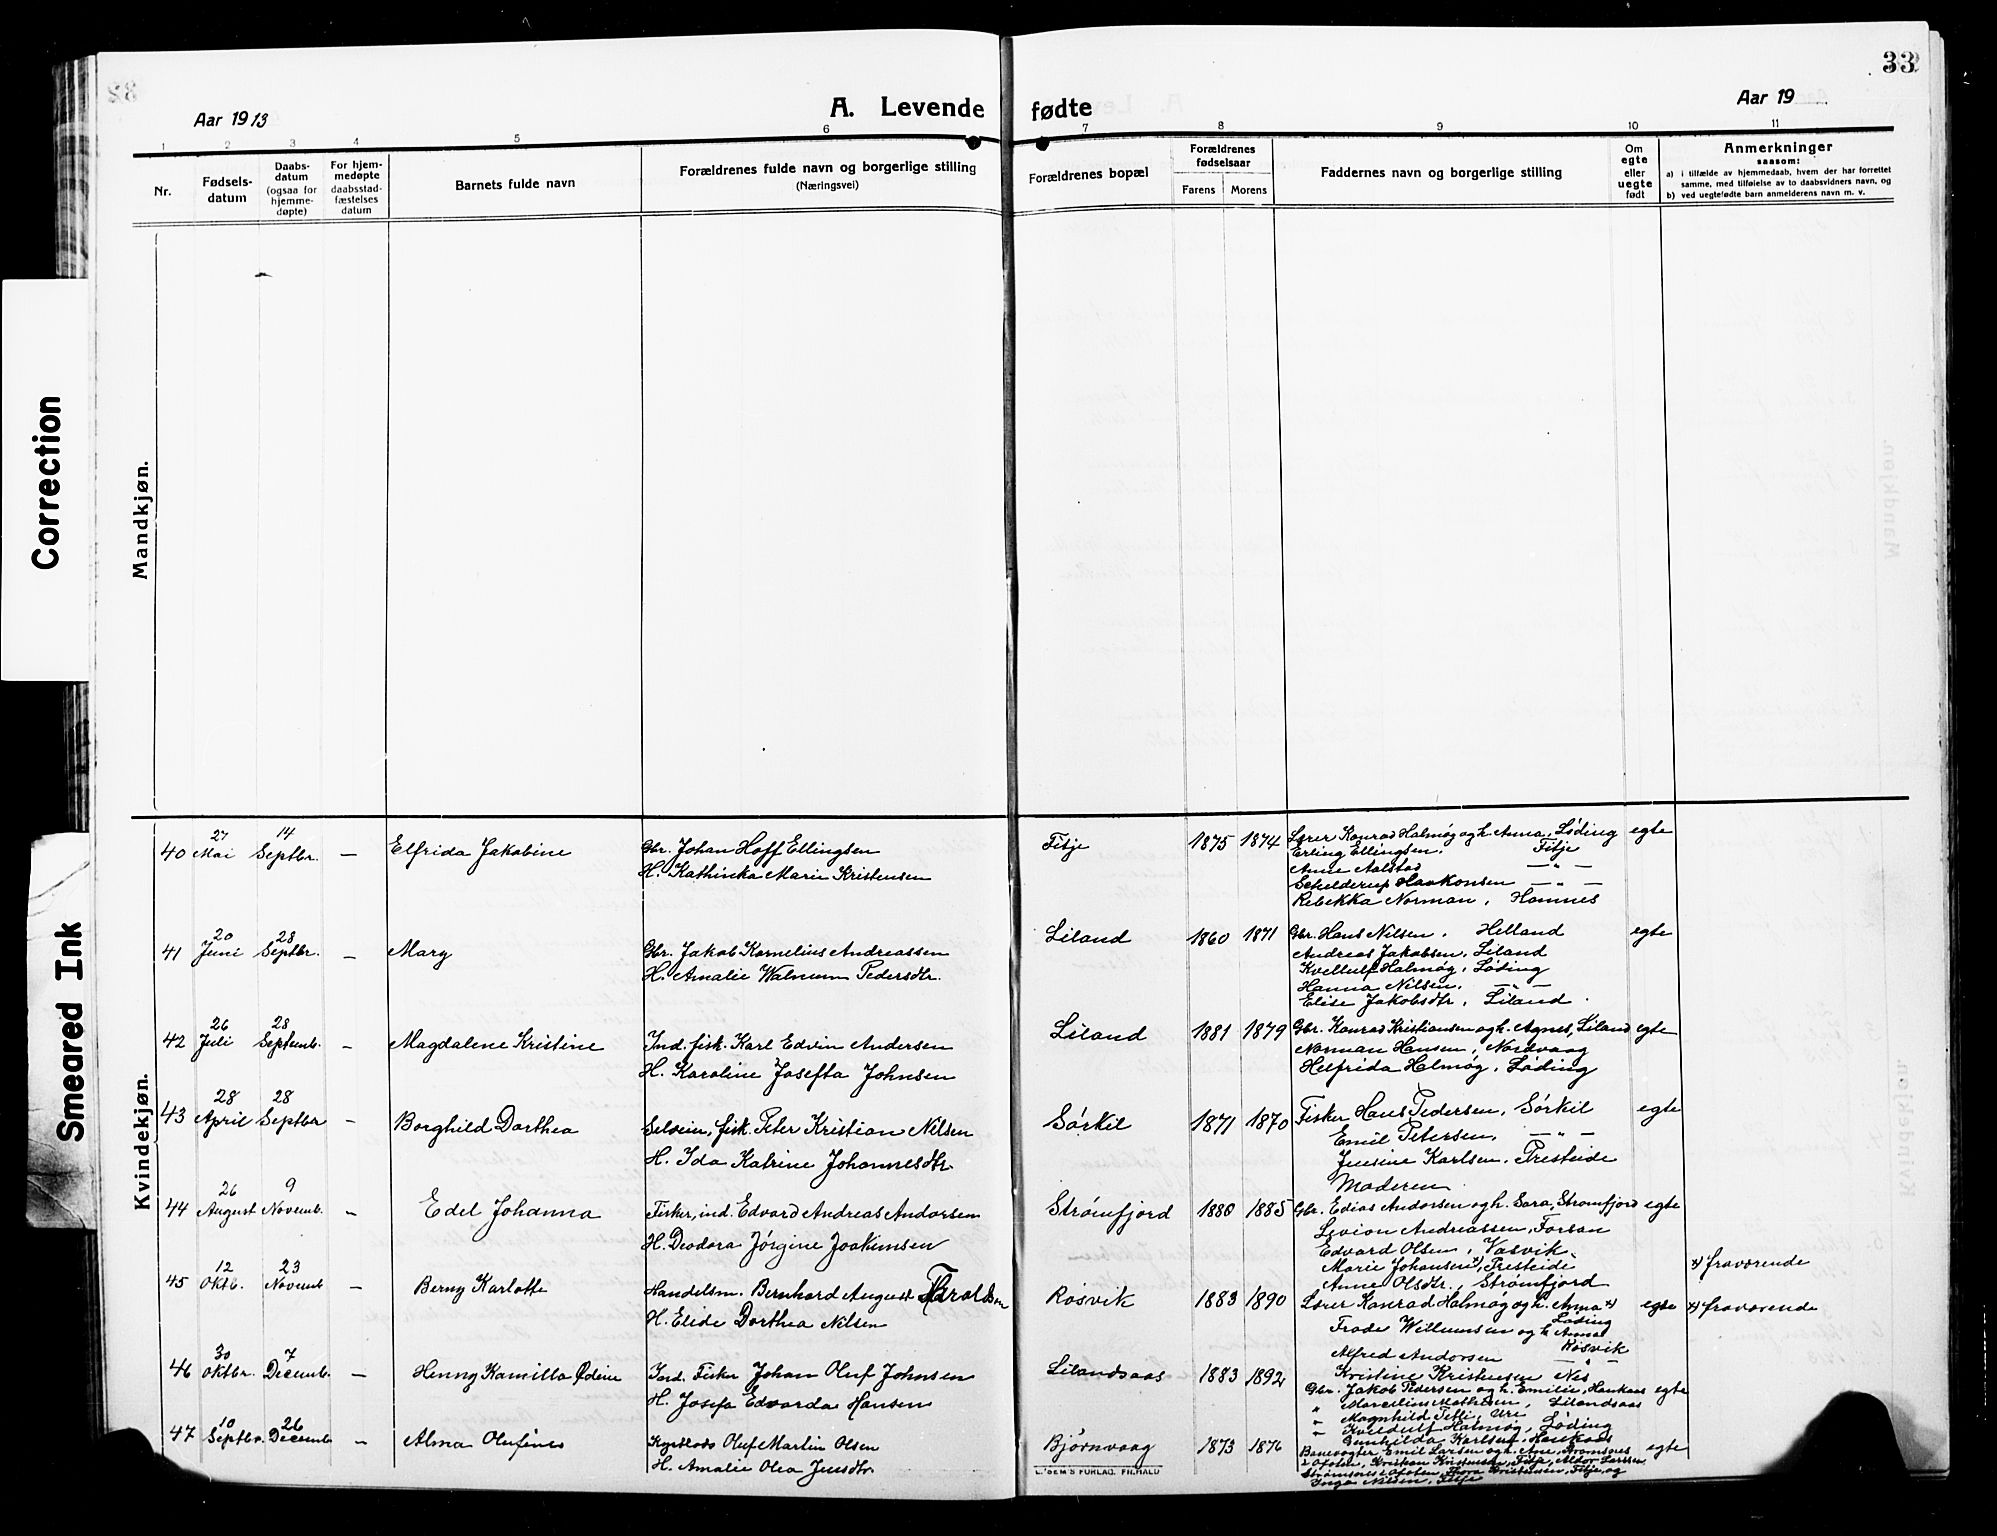 33
Aar 1913
A. Levende fødte
Aar 19
1 2 3 4 5 6 7 8 9 10 11
Nr.
Fødsels-datum
Daabs-datum (ogsaa for hjemme-døpte)
For hjem-medøpte daabsstad-fæstelses datum
Barnets fulde navn
Forældrenes fulde navn og borgerlige stilling
(Næringsvei)
Forældrenes bopæl
Forældrenes fødselsaar
Farens Morens
Faddernes navn og borgerlige stilling
Om egte eller uegte født
Anmerkninger
saasom:
a) i tilfælde av hjemmedaab, hvem der har forrettet
samme, med tilføielse av to daabsvidners navn, og
b) ved uegtefødte barn anmelderens navn m. v.
Correction
Smeared Ink
Mandkjøn.
Kvindekjøn.
40 27 Mai 14 Septbr. — Elfrida Jakobine
Gbr. Johan Hoff Ellingsen
H. Kathinka Marie Kristensen
Fitje 1875 1874
Lærer Konrad Halmøg og h. Anna, Løding egte
Erling Ellingsen. Fitje
Anne Aalstad — " —
Schelderup Haakonsen — " —
Rebekka Norman, Hamnes
41 20 Juni 28 Septbr. — Mary
Gbr. Jakob Kornelius Andreassen
H. Amalie Walnum Pedersdtr.
Liland 1860 1871
Gbr. Hans Nilsen. Helland egte
Andreas Jakobsen, Liland
Kvellulf Halmøg, Løding
Hanna Nilsen. — " —
Elise Jakobsdtr, Liland.
42 26 Juli 28 Septemb. — Magdalene Kristine
Ind. fisk. Karl Edvin Andersen
H. Karoline Josefta Johnsen
Liland 1881 1879
Gbr. Konrad Kristiansen og h. Agnes, Liland egte
Norman Hansen, Nordvaag
Helfrida Halmøg, Løding
43 28 April 28 Septbr — Borghild Dorthea
Selveier, fisk. Peter Kristian Nilsen
H. Ida Katrine Johannesdtr.
Sørkil 1871 1870
Fisker Hans Pedersen, Sørkil egte
Emil Petersen, — " —
Jensine Karlsen, Presteide
Moderen
44 26 August 9 Novemb. — Edel Johanna
Fisker, ind. Edvard Andreas Andorsen
H. Deodora Jørgine Joakimsen
Strømfjord 1880 1885
Gbr. Edias Andorsen og h. Sara, Strømfjord egte
Levion Andreassen, Forsan
Edvard Olsen, Vasvik.
Marie Johansen x), Presteide x) fraværende
Anne Olsdtr., Strømfjord
45 12 Oktb. 23 Novemb — Berny Karlotte
Handelsm. Bernhard August Haraldsen
H. Elide Dorthea Nilsen
Røsvik 1883 1890
Lærer Konrad Halmøg og h. Anna x) Løding egte x) fraværende
Frode Willumsen og h. Anna Røsvik
Alfred Andorsen — " —
Kristine Kristensen Nes
46 30 Oktbr. 7 Decemb. — Henny Kamilla Ødine
Ind. Fisker Johan Oluf Johnsen
H. Josefa Edvarda Hansen
Lilandsaas 1883 1892
Gbr. Jakob Pedersen og h. Emilie, Haukaas egte
" Marcelius Mathisen, Lilandsaas
" Magnhild
" Kveldulf Halmøg, Løding
Gunhilda Karlsen, Haukaas
47 10 Septbr. 26 Decemb — Alma Olufines
Oluf Martin Olsen
H. Amalie Olea Jensdtr.
Bjørnvaag 1873 1876
Banevogter Emil Larsen og h. Ane, Strømsnes egte
i Ofoten, Kristian Kristensen, Fitje, Aldor Larssen
Strømsnes i Ofoten, Thora Kristensen, Fitje, og
Inga Nilsen, Fitje